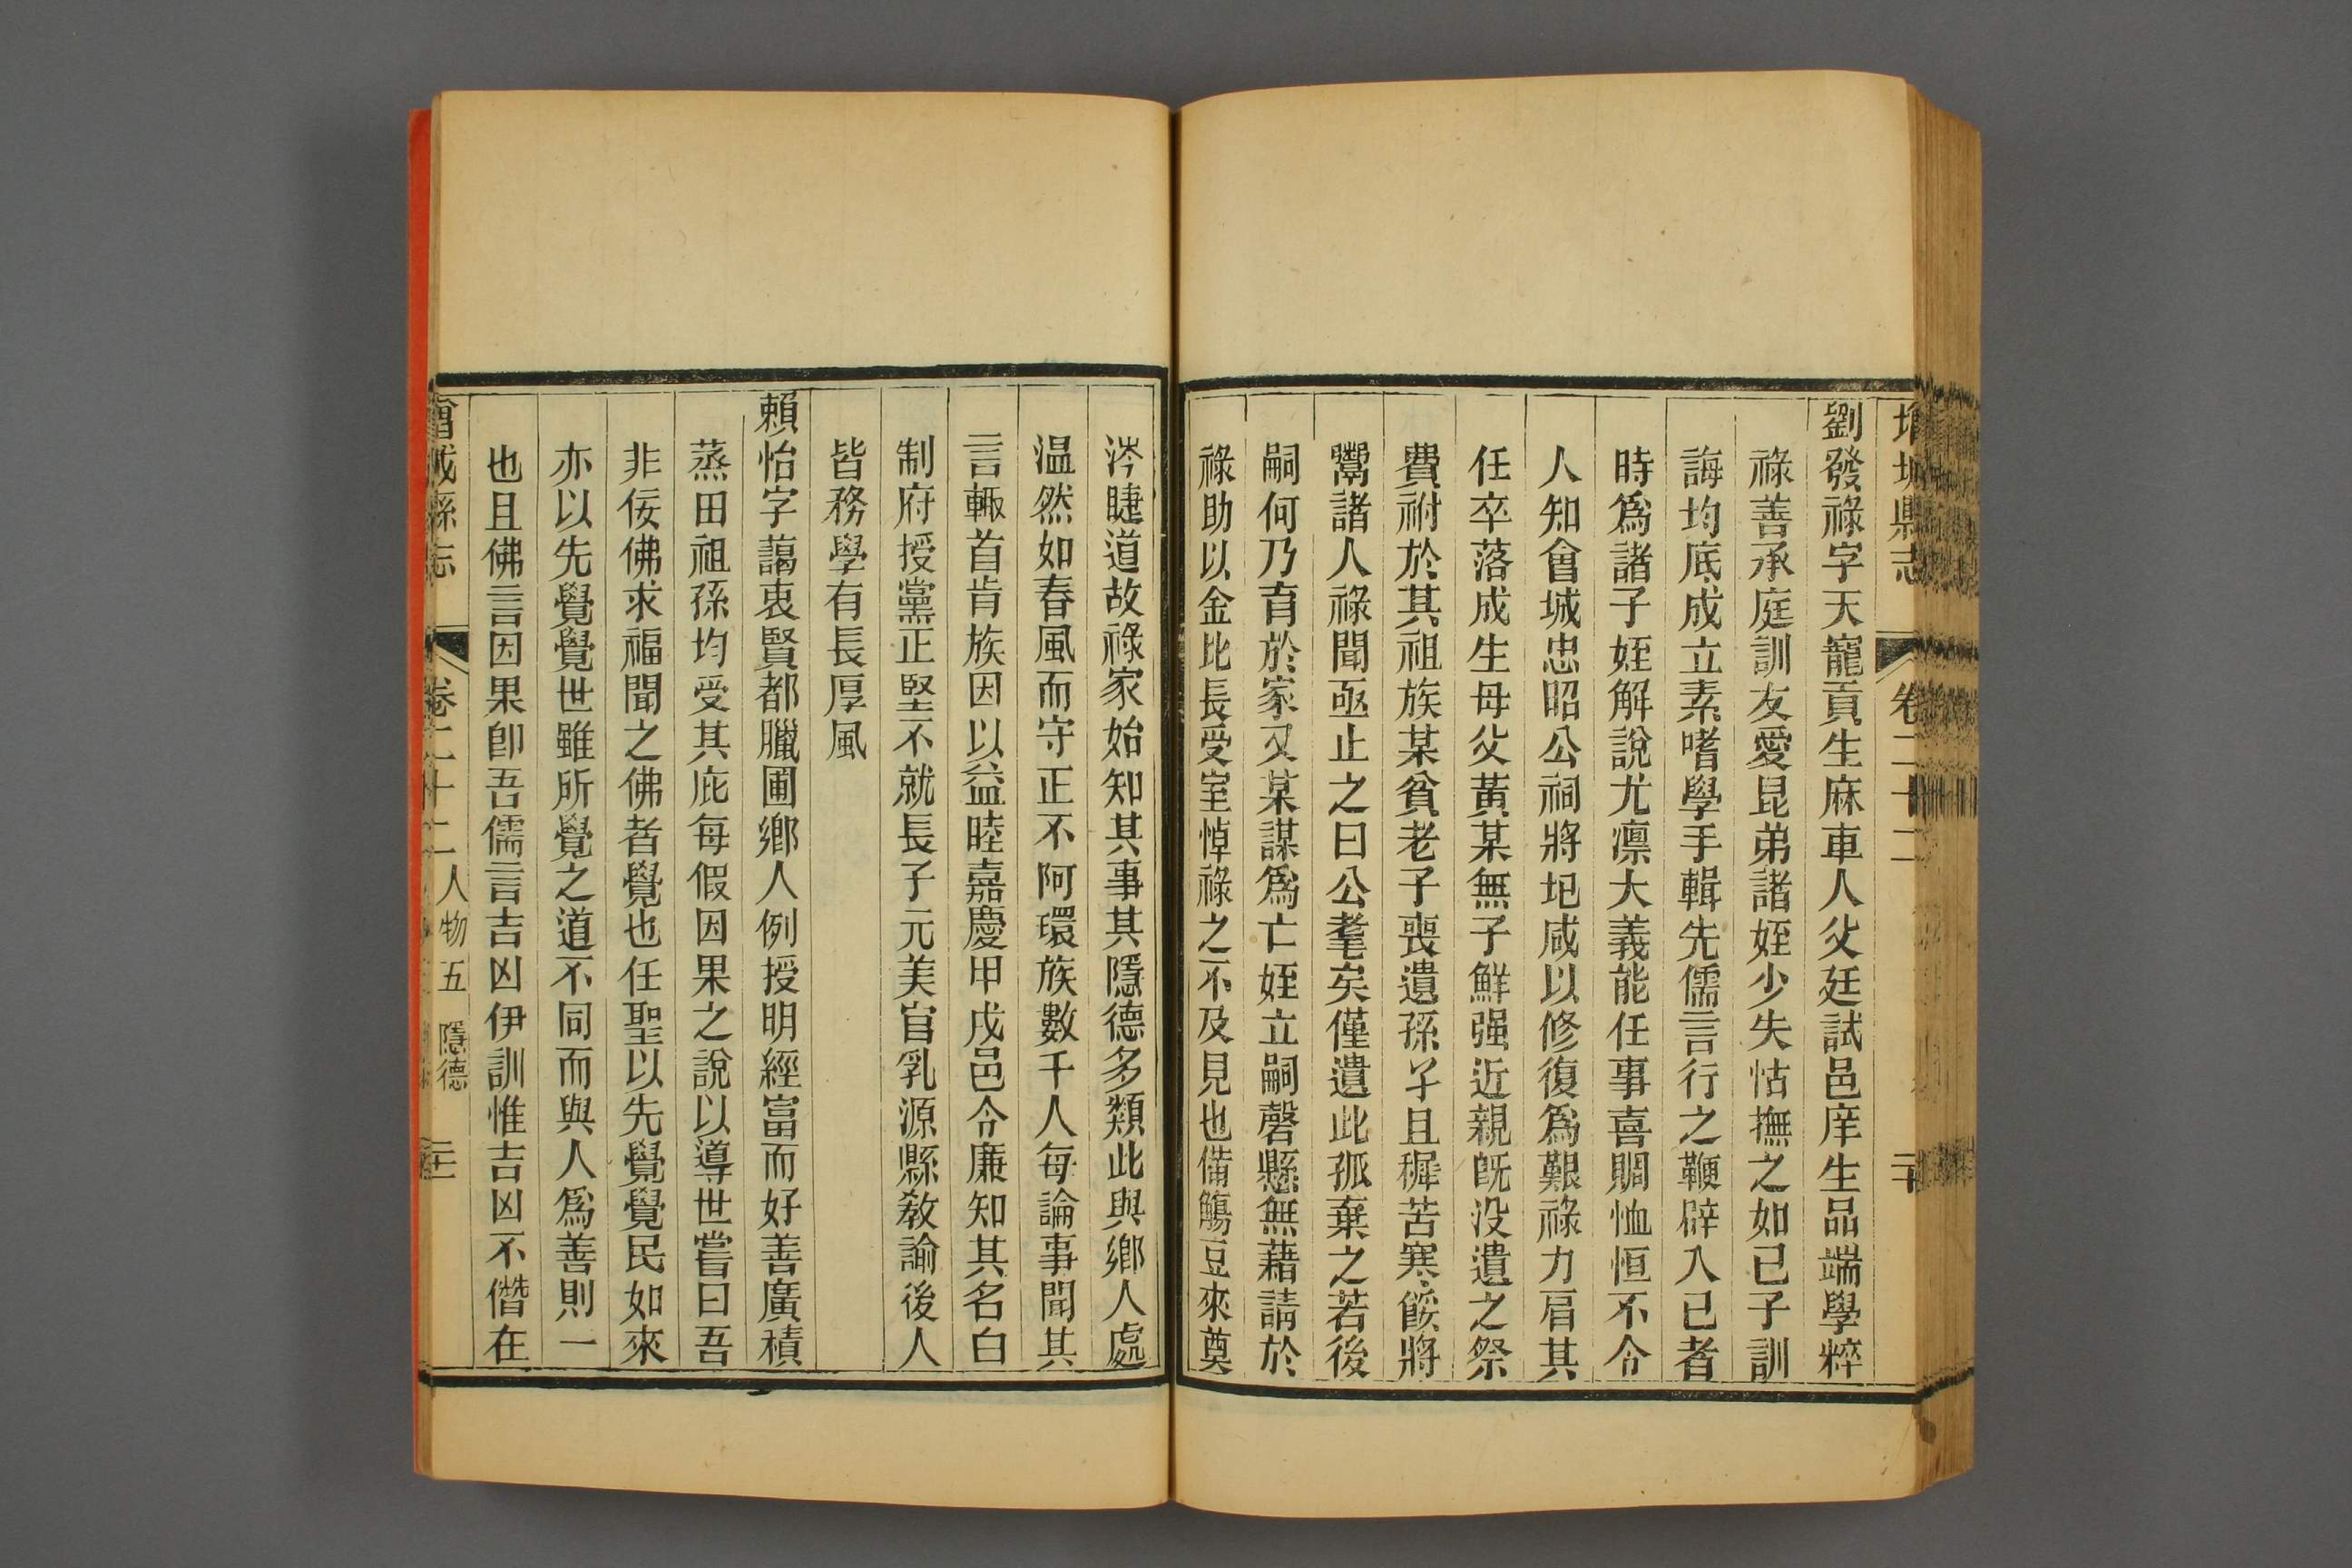 增城縣志 卷二十二 二十
劉發祿字天寵貢生麻車人父廷試邑庠生品端學粹
祿善承庭訓友愛昆弟諸姪少失怙撫之如已子訓
誨均底成立素嗜學手輯先儒言行之鞭辟入已者
時爲諸子姪解說尤凛大義能任事喜賙恤恒不令
人知會城忠昭公祠將圮咸以修復爲艱祿力肩其
任卒落成生母父黃某無子鮮强近親旣没遺之祭
費祔於其祖族某貧老子喪遺孫孑且穉苦寒餒將
鬻諸人祿聞亟止之曰公耄矣僅遺此孤棄之若後
嗣何乃育於家又某謀爲亡姪立嗣磬懸無藉請於
祿助以金比長受室悼祿之不及見也備觴豆來奠
涔睫道故祿家始知其事其隱德多類此與鄉人處
温然如春風而守正不阿環族數千人每論事聞其
言輒首肯族因以益睦嘉慶甲戌邑令廉知其名白
制府授黨正堅不就長子元美官乳源縣教諭後人
皆務學有長厚風
賴怡字藹衷賢都臘圃鄉人例授明經富而好善廣積
蒸田祖孫均受其庇每假因果之說以導世嘗曰吾
非佞佛求福聞之佛者覺也任聖以先覺覺民如來
亦以先覺覺世雖所覺之道不同而與人爲善則一
也且佛言因果卽吾儒言吉凶伊訓惟吉凶不僭在
增城縣志 卷二十二 人物五 隱德 二十一